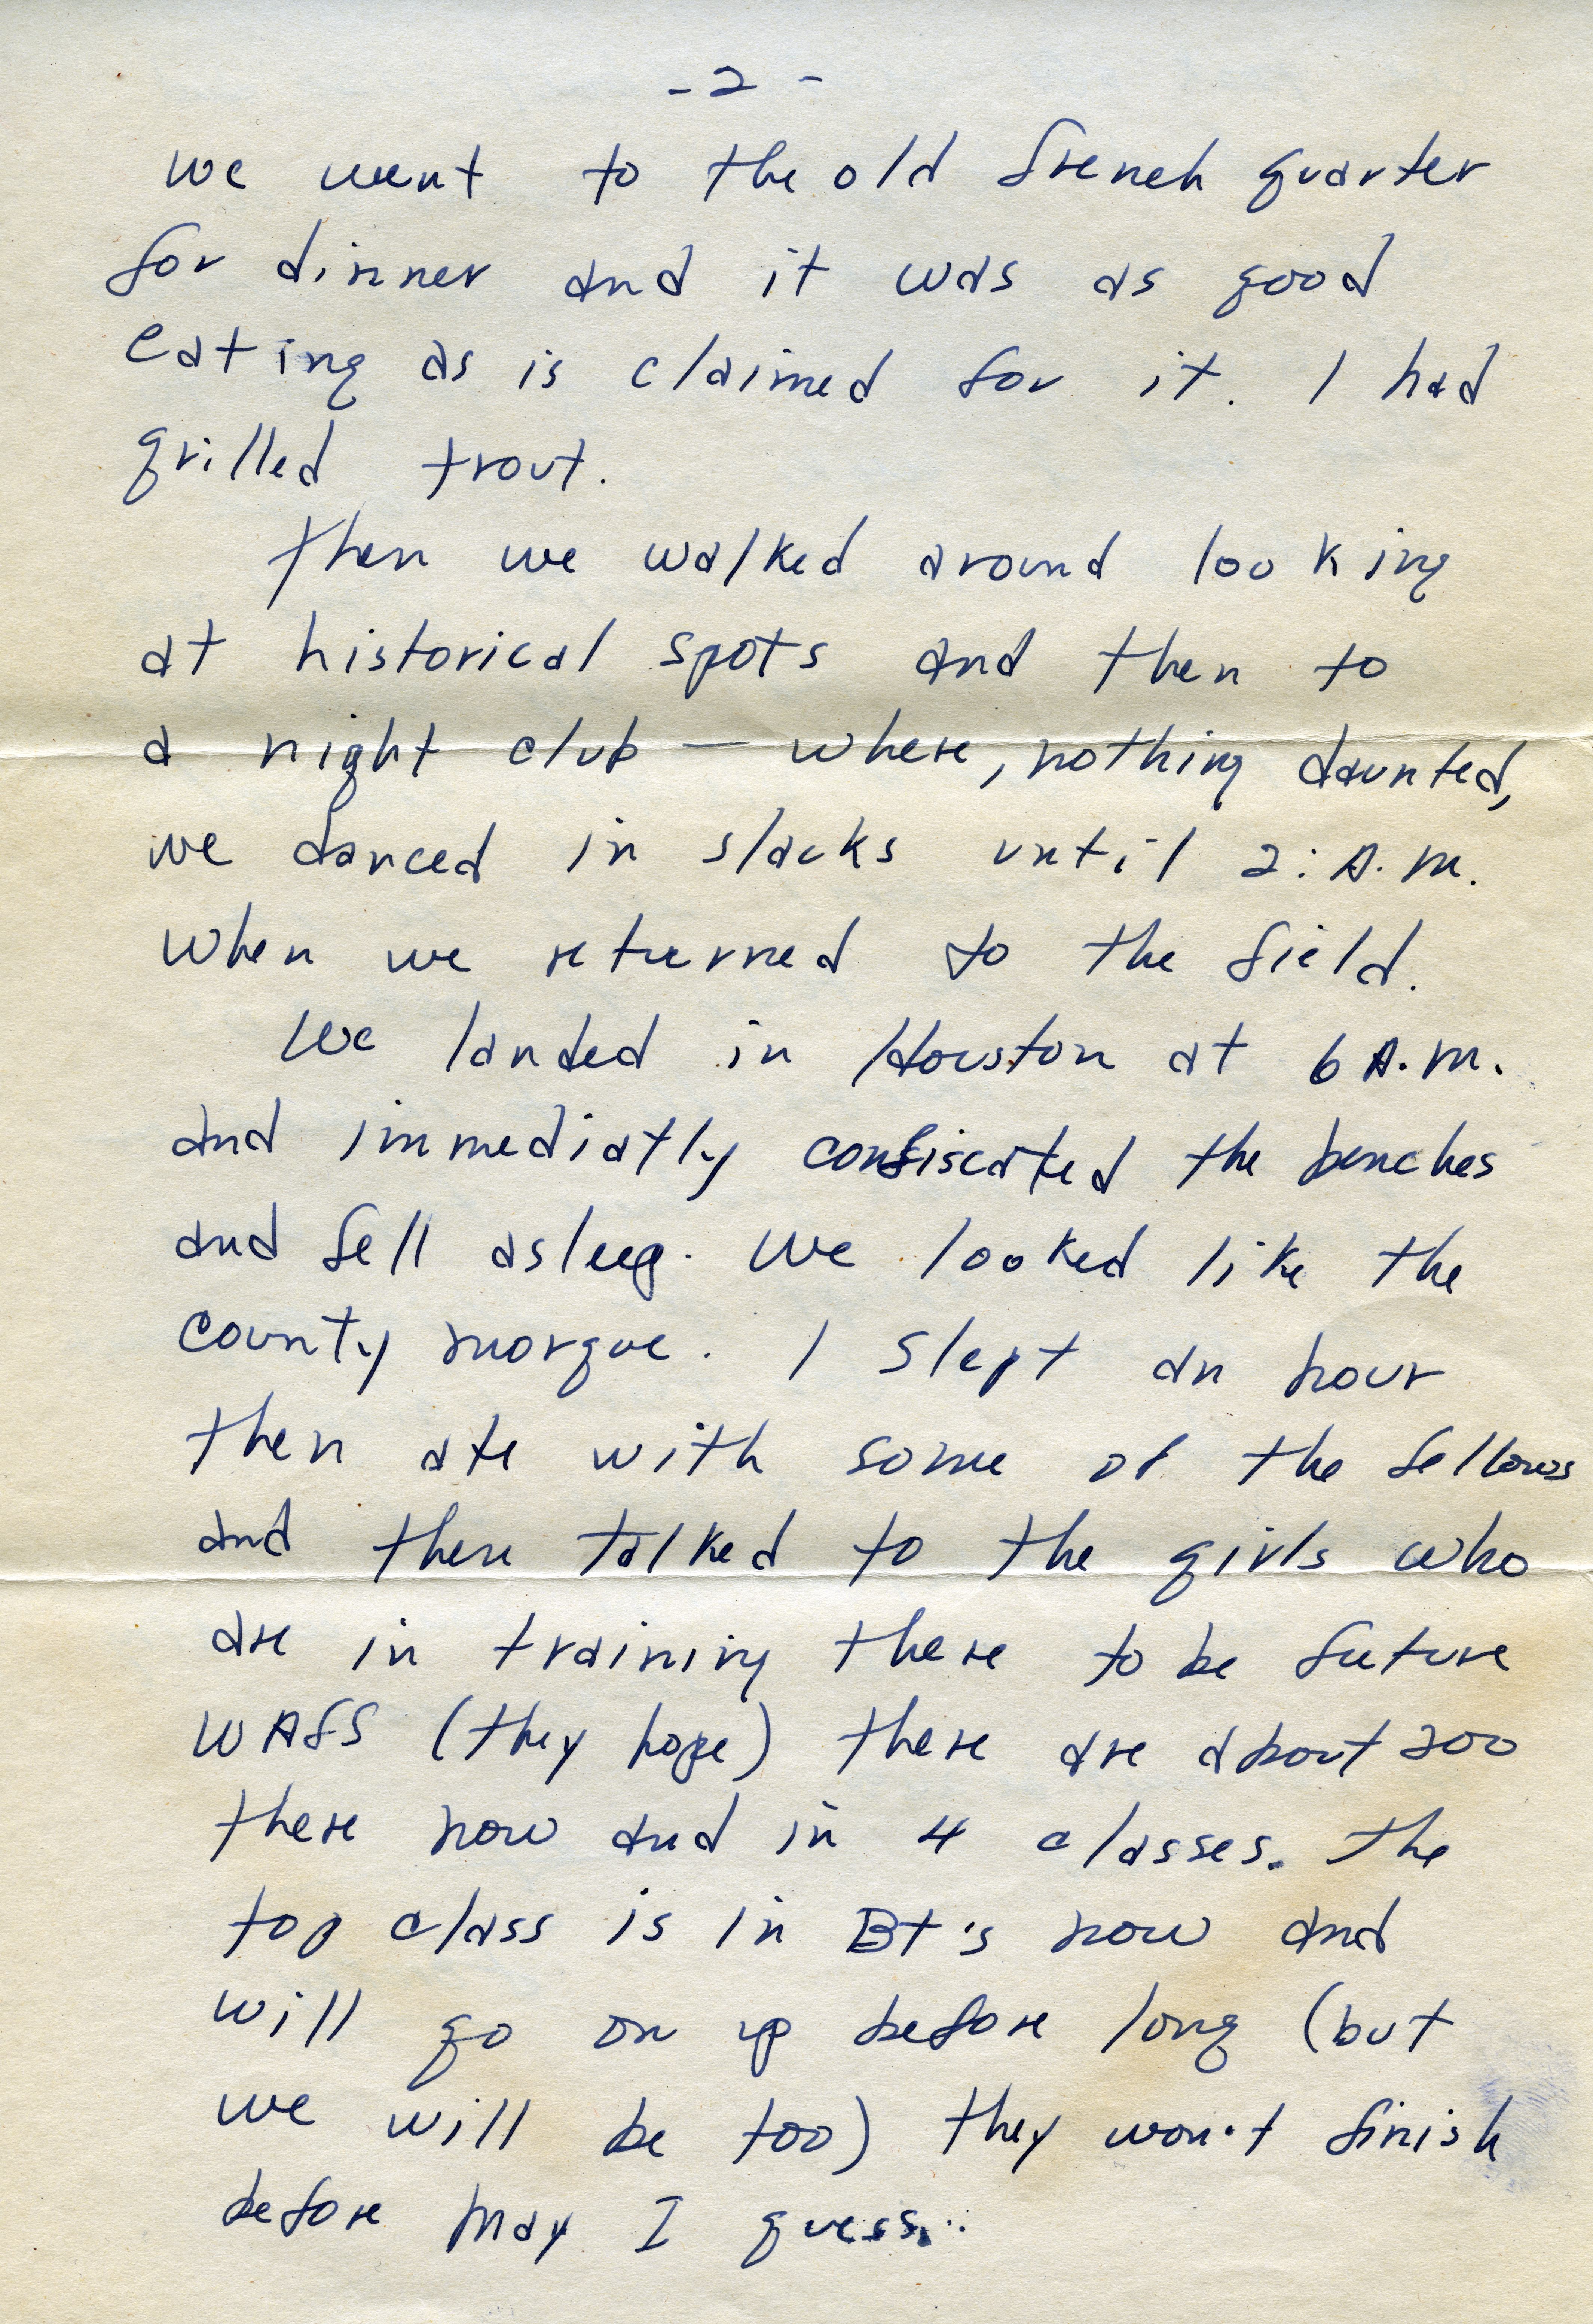 - 2 -
we went to the old french quarter
for dinner and it was as good
eating as is claimed for it. I had
grilled trout.
Then we walked around looking
at historical spots and then to
a night club — where, nothing daunted,
we danced in slacks until 2: A.M.
when we returned to the field.
We landed in Houston at 6 A.M.
and immediatly confiscated the benches
and fell asleep. We looked like the
county morgue. I slept an hour
then ate with some of the fellows
and then talked to the girls who
are in training there to be future
WAFS (they hope) there are about 200
there now and in 4 classes. The
top class is in BT's now and
will go on up before long (but
we will be too) they won't finish
before May I guess..